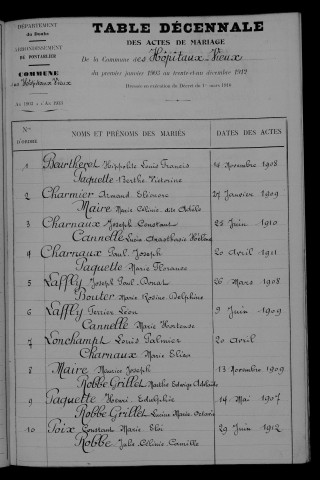 DÉPARTEMENT
du Doubs
ARRONDISSEMENT
DE PONTARLIER
COMMUNE
des Hôpitaux Vieux
TABLE DÉCENNALE
DES ACTES DE MARIAGE
De la Commune des Hôpitaux-Vieux
du premier janvier 1903 au trente et un décembre 1912
Dressée en exécution du Décret du 1er mars 1910
An 1903 à An 1913
Nos D'ORDRE NOMS ET PRÉNOMS DES MARIÉS DATES DES ACTES
1 Bourtheret Hippolite Louis Francis 14 Novembre 1908
Paquette Berthe Victorine
2 Charmier Armand Eléonore 27 Janvier 1909
Maire Marie Célinie dite Adèle
3 Charnaux Joseph Constant 28 Juin 1910
Cannelle Lucia Anasthasie Hélène
4 Charnaux Paul Joseph 20 Avril 1911
Paquette Marie Florance
5 Laffly Joseph Paul Donat 26 Mars 1908
Boutter Marie Rosine Delphine
6 Laffly Ferrier Léon 9 Juin 1909
Cannelle Marie Hortense
7 Lonchampt Louis Palmier 20 Avril
Charnaux Marie Elisa
8 Maire Maurice Joseph 13 Novembre 1909
Robbe Grillet Marthe Edwige Adelaïde
9 Paquette Henri Edulphie 14 Mai 1907
Robbe Grillet Lucine Marie Octavie
10 Poix Constant Marie Eloi 29 Juin 1912
Robbe Julie Célinie Camille